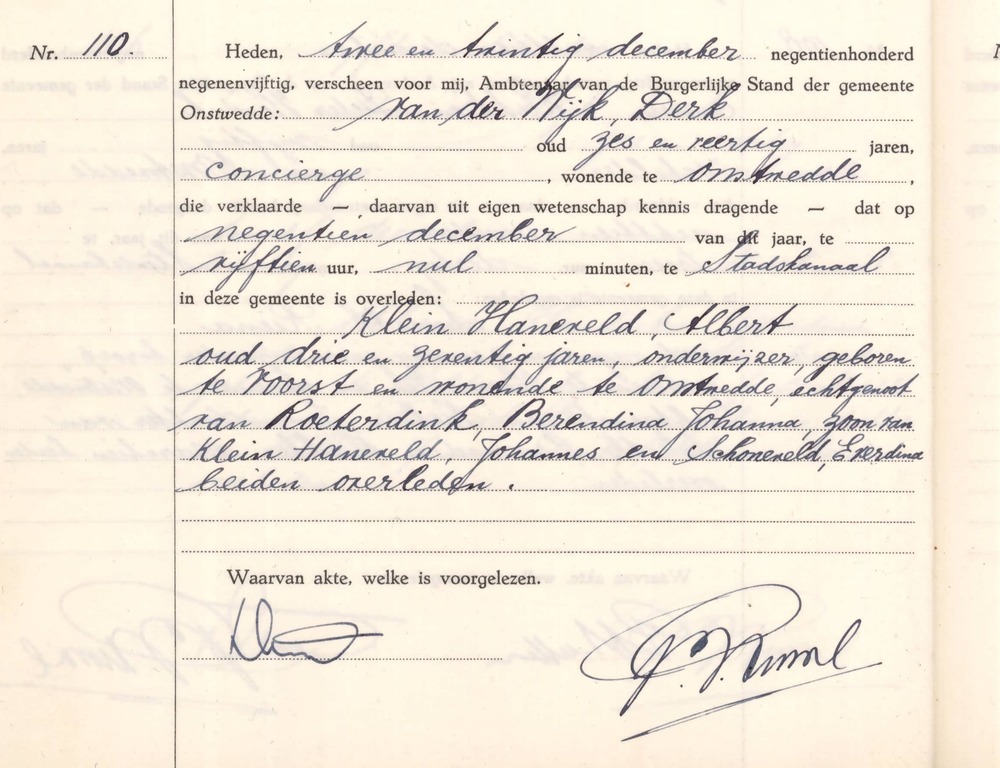 Nr. 110.
Heden, twee en twintig december negentienhonderd
negenenvijftig, verscheen voor mij, Ambtenaar van de Burgerlijke Stand der gemeente
Onstwedde: van der Wijk, Derk
oud zes en veertig jaren,
concierge, wonende te Onstwedde,
die verklaarde — daarvan uit eigen wetenschap kennis dragende — dat op
negentien december van dit jaar, te
vijftien uur, nul minuten, te Stadskanaal
in deze gemeente is overleden:
Klein Haneveld, Albert
oud drie en zeventig jaren, onderwijzer, geboren
te Voorst en wonende te Onstwedde, echtgenoot
van Roeterdink, Berendina Johanna, zoon van
Klein Haneveld, Johannes en Schoneveld, Everdina
beiden overleden.
Waarvan akte, welke is voorgelezen.